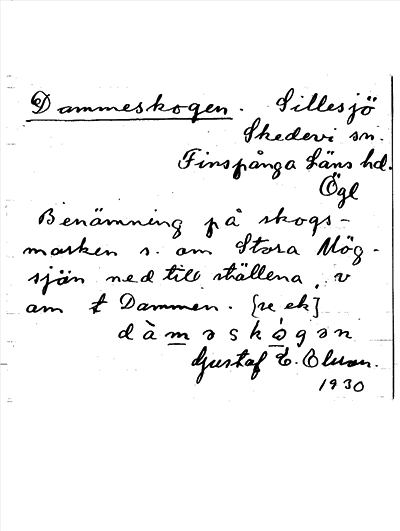 Dammeskogen. Sillesjö
Skedevi sn.
Finspånga Läns hd.
Ögl
Benämning på skogs-
marken s. om Stora Mög-
sjön ned till ställena, v
om t Dammen. [se ek]
dàməskógən
Gustaf E. Olsson.
1930